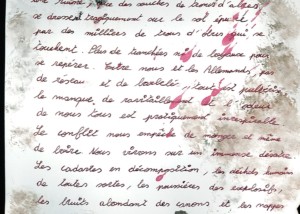 des souches de troncs d'arbres
se dressent tragiquement sur le sol épars
par des milliers de trous d'obus qui se
touchent. Plus de tranchées ni de boyaux pour
se repérer. Entre nous et les Allemands, pas
de réseau et de barbelé, tout est pulvérisé
le manque de ravitaillement et l'odeur
de nous tous est pratiquement insupportable
Le conflit nous empêche de manger et même
de boire Nous vivons sur un immense désastre
Les cadavres en décomposition, les déchets humains
de toutes sortes, les poussières des explosifs,
les bruits abondant des canons et les nappes